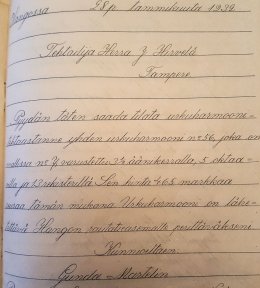 Hangossa 28 p. tammikuuta 1939.
Tehtailija Herra J. Hirvelä
Tampere.
Pyydän täten saada tilata urkuharmooni-
tehtaastanne yhden urkuharmooni no 56, joka on
no varustettu 3¼ äänikerralla, 5 oktaa-
ja 13 rekisterillä Sen hinta 465 markkaa
tämän mukana Urkuharmooni on lähe-
tettävä Hangon rautatieasemalle perittäväkseni
Kunnioittaen.
Gunda Marklin